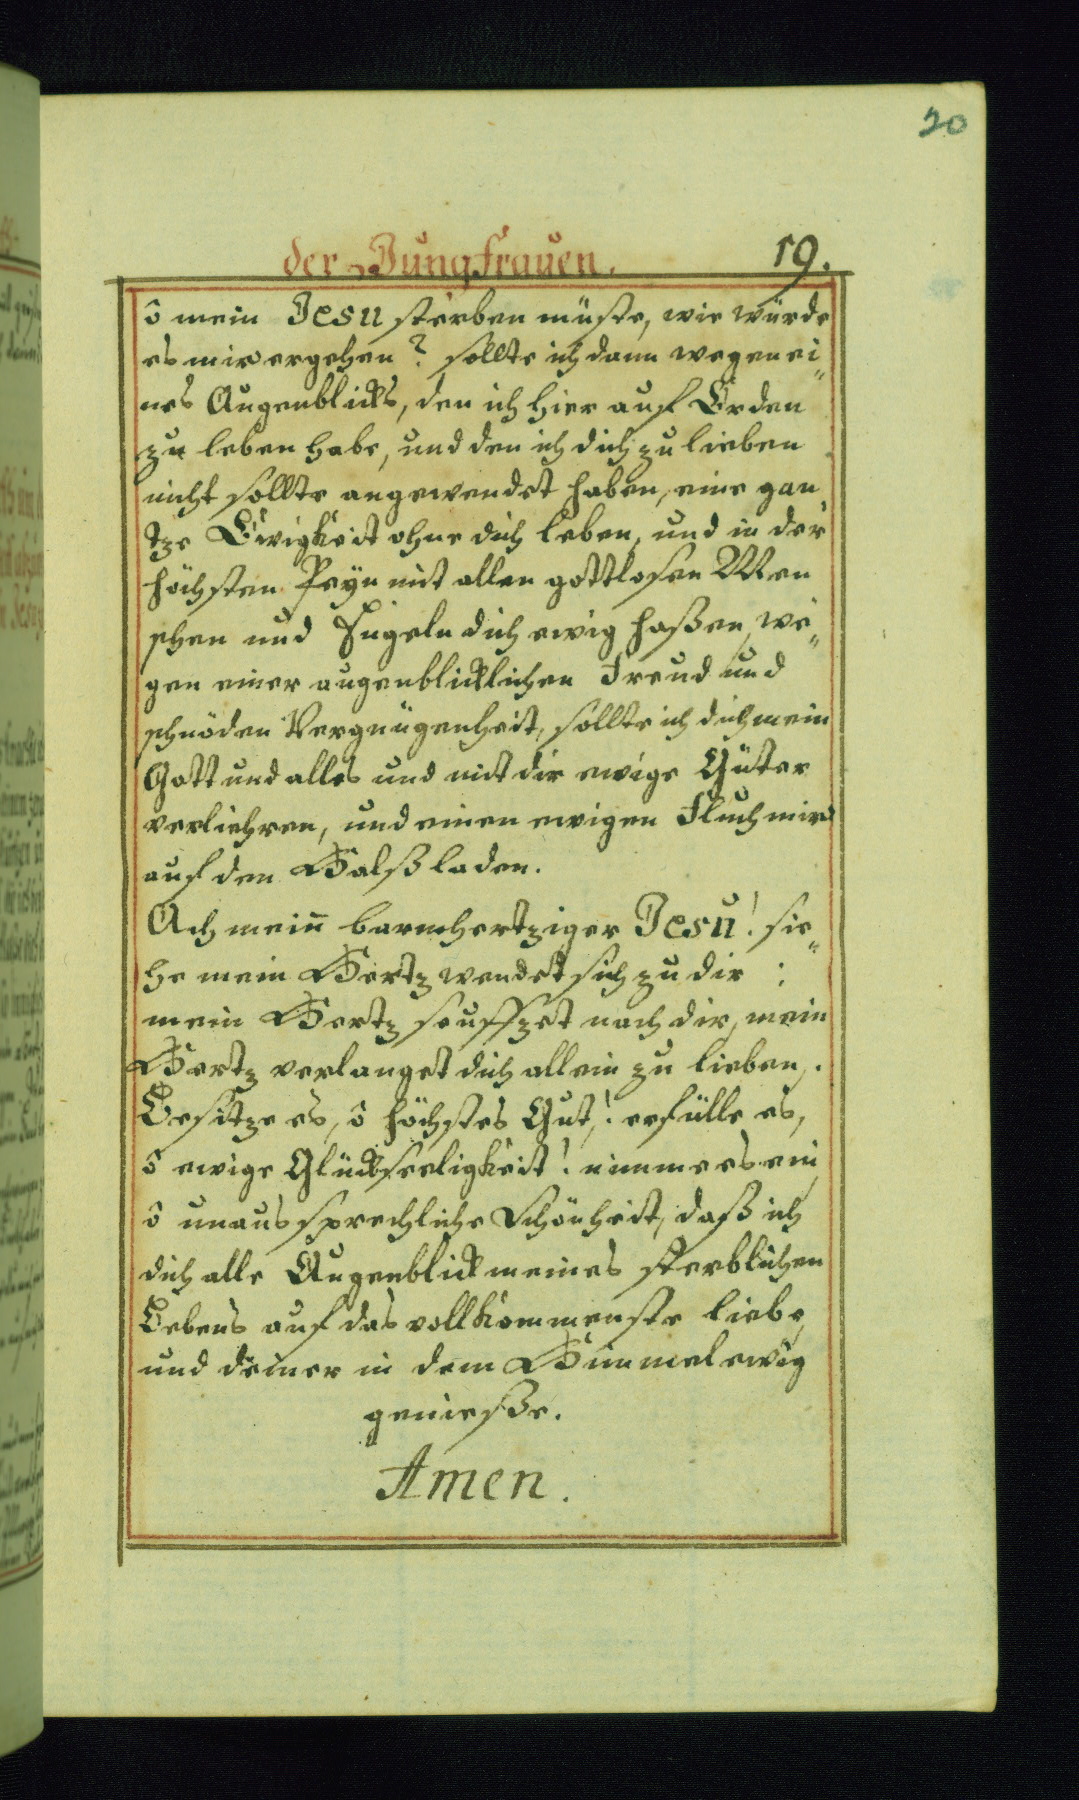 20
der Jungfrauen. 19.
ô mein Jesu sterben müste, wie würde
es mir ergehen? sollte ich dann wegen ei„
nes Augenblicks, den ich hier auf Erden
zu leben habe, und den ich dich zu lieben
nicht sollte angewendet haben, eine gan
tze Ewigkeit ohne dich leben, und in der
höchsten Peyn mit allen gottlosen Men
schen und Engeln dich ewig haßen, we„
gen einer augenblicklichen Freud und
schnöden Vergnügenheit, sollte ich dich mein
Gott und alles und mit dir ewige Güter
verliehren, und einen ewigen Fluch mir
auf den Halß laden.
Ach mein barmhertziger Jesu! sie„
he mein Hertz wendet sich zu dir:
mein Hertz seuffzet nach dir, mein
Hertz verlanget dich allein zu lieben.
Besitze es, ô höchstes Gut! erfülle es,
ô ewige Glückseeligkeit! nimme es ein
ô unaussprechliche Schönheit, daß ich
dich alle Augenblick meines sterblichen
Lebens auf das vollkommenste liebe,
und deiner in dem Himmel ewig
genieße.
Amen.